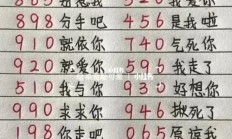 898 分手吧 456 是我啦
910 就依你 740 气死你
920 就爱你 596 我走了
510 我与你 930 好想你
990 求求你 946 揪死了
198 你走吧 065 原谅我